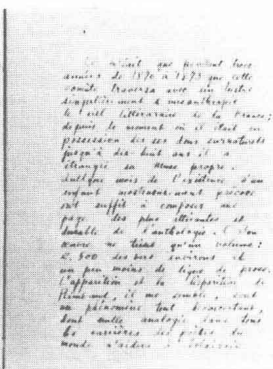 Ce n'était que pendant trois
années de 1870 à 1873 que cette
comète traversa avec un lustre
singulièrement &
le ciel littéraire de la France;
depuis le moment où il était en
possession des ses dons surnaturels
jusqu'à dix huit ans il a
étranglé sa Muse propre.
Quelques mois de l'existence d'un
enfant monstrueusement précoce
ont suffit à composer une
page des plus attirantes et
durable de l'anthologie. Son
œuvre ne tiens qu'un volume:
2.500 des vers environs et
un peu moins de ligne de prose.
L'apparition et la disparition de
Rimbaud, il me semble, sont
un phénomène tout
dont nulle analogie dans tous
les carrières des poètes du
monde